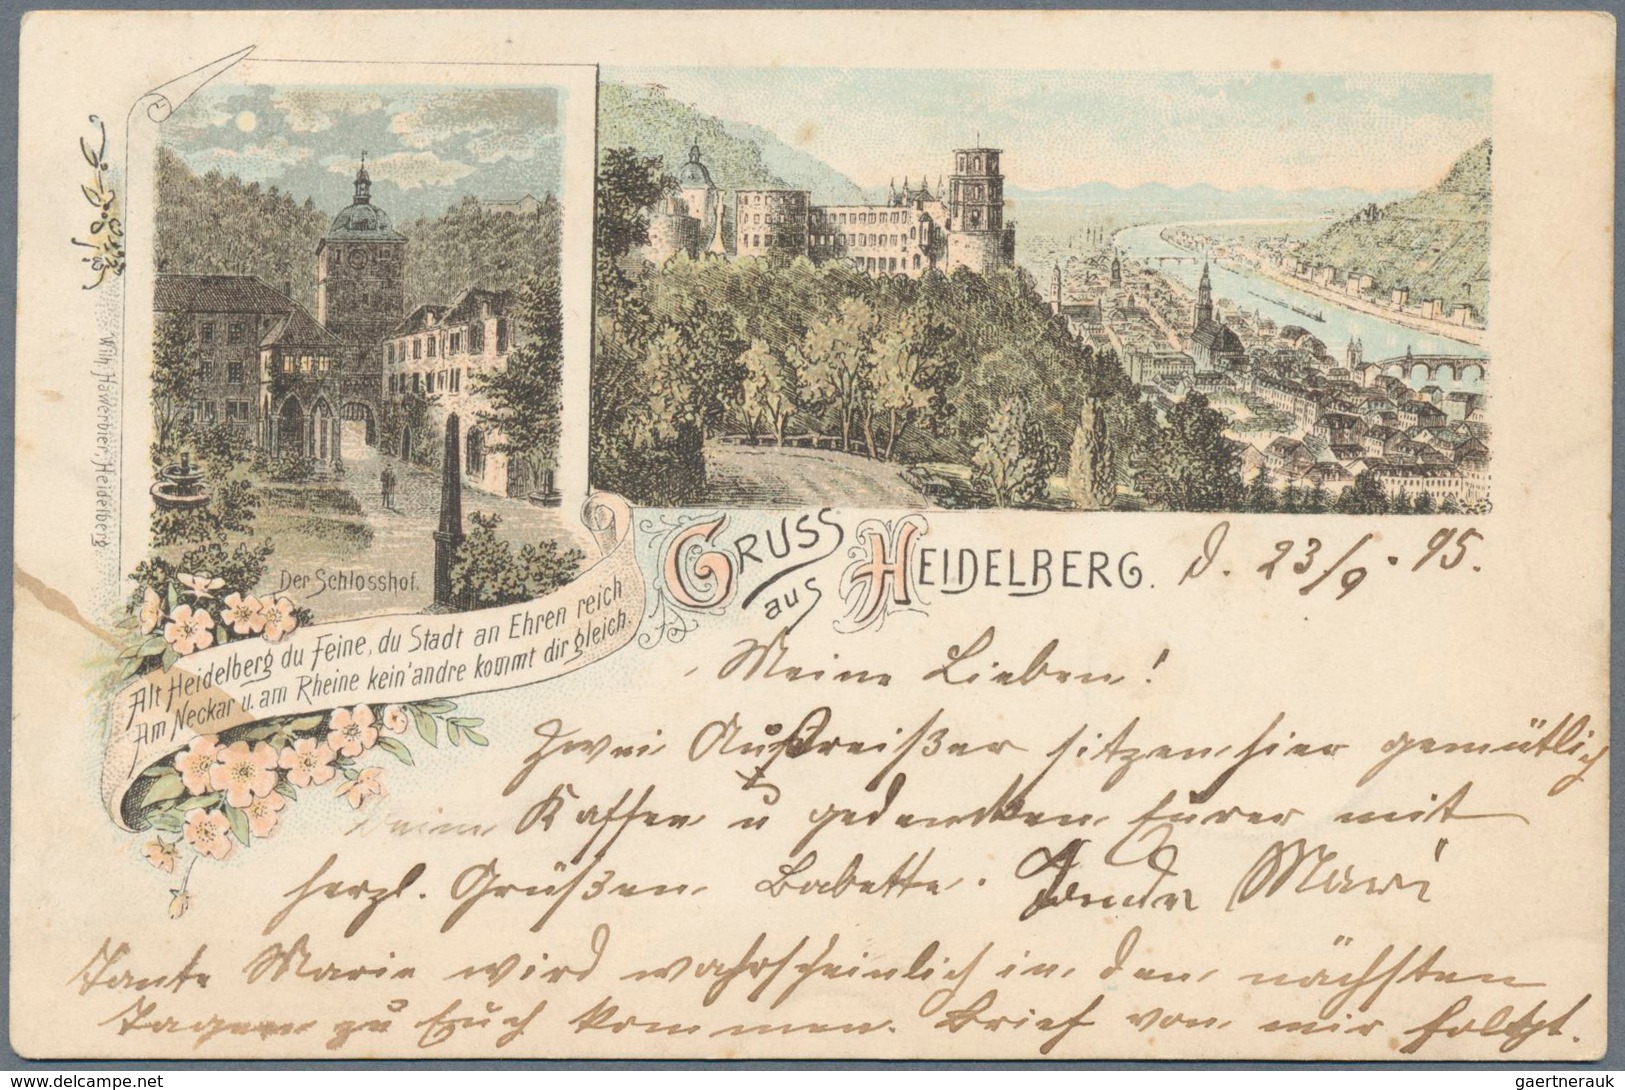 Wilh. Hawerbier, Heidelberg.
Der Schlosshof.
Alt Heidelberg du Feine, du Stadt an Ehren reich
Am Neckar u. am Rheine kein' andre kommt dir gleich.
GRUSS aus HEIDELBERG. d. 23/9. 95.
Meine Lieben!
Zwei Außreißer sitzen hier gemütlich
beim Kaffee u gedenken Eurer mit
herzl. Grüßen Babette. Marie
Tante Marie wird wahrscheinlich in den nächsten
Tagen zu Euch kommen. Brief von mir folgt.
gaertnerauk